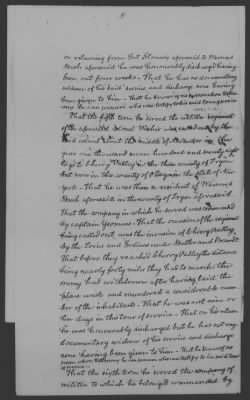 5
on returning from Fort Stanwix aforesaid to Maroons
Bush aforesaid he was honorably discharged having
been out four weeks - That he has no documentary
evidence of his said service and discharge none having
been given to him - that he knows of no
person who can testify to his said
That the fifth term he served the with the regiment
of the aforesaid Colonel Visher was called out by the
said colonel about the middle of November in the
year one thousand seven hundred and seventy eight
to go to Cherry Valley in the then county of Tryon
but now in the county of Otsego in the state of New
York - That he was then a resident of Maroons
Bush aforesaid in the county of Tryon aforesaid.
That the company in which he served was commanded
by captain Yeomans - That the occasion of the regiment
being called out was the invasion of Cherry Valley
by the Tories and Indians under Butler and Brandt.
That before they reached Cherry Valley the distance
being nearly forty miles they had to march the
enemy had withdrawn after having laid the
place waste and murdered a considerable num-
ber of the inhabitants - That he was out nine or
ten days in this tour of service - That on his return
he was honorably discharged but he has not any
documentary evidence of his service and discharge
none having been given to him - That he knows of no
person who can testify to his said
service -
That the sixth term he served the company of
militia to which he belonged commanded by